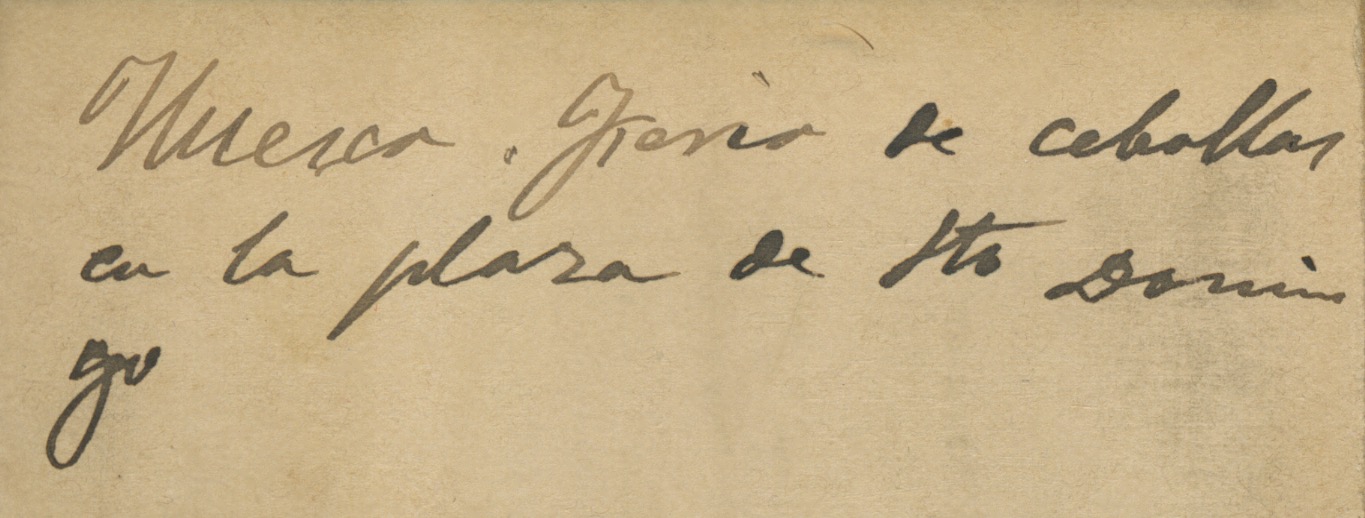 Huesca. Feria de cebollas
en la plaza de Sto Domin
go